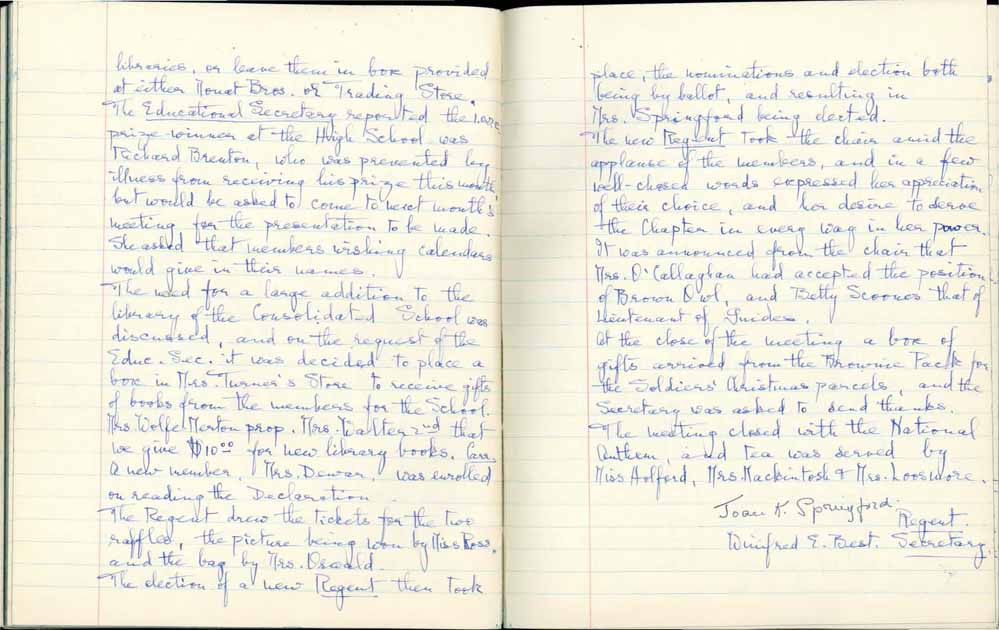 libraries, or leave them in box provided
at either Mouat Bros. or Trading Store.
The Educational Secretary reported the I.O.D.E.
prize-winner at the High School was
Richard Brenton, who was prevented by
illness from receiving his prize this month
but would be asked to come to next month's
meeting for the presentation to be made.
She asked that members wishing calendars
would give in their names.
The need for a large addition to the
library of the Consolidated School was
discussed, and on the request of the
Educ. Sec. it was decided to place a
box in Mrs. Turner's Store to receive gifts
of books from the members for the School.
Mrs Wolfe Merton prop. Mrs. Walter 2nd that
we give $10.00 for new library books. Carr.
A new member, Mrs. Dewar, was enrolled
on reading the Declaration.
The Regent drew the tickets for the two
raffles, the picture being won by Miss Ross.
and the bag by Mrs. Oswald.
The election of a new Regent then took
place, the nominations and election both
being by ballot, and resulting in
Mrs. Springford being elected.
The new Regent took the chair amid the
applause of the members, and in a few
well-chosen words expressed her appreciation
of their choice, and her desire to serve
the Chapter in every way in her power.
It was announced from the chair that
Mrs. O'Callaghan had accepted the position
of Brown Owl, and Betty Scoones that of
Lieutenant of Guides.
At the close of the meeting a box of
gifts arrived from the Brownie Pack for
the Soldiers' Christmas parcels, and the
Secretary was asked to send thanks.
The meeting closed with the National
Anthem, and tea was served by
Miss Holford, Mrs. Mackintosh & Mrs. Loosmore.
Joan K. Springford.
Regent.
Winifred E. Best. Secretary.